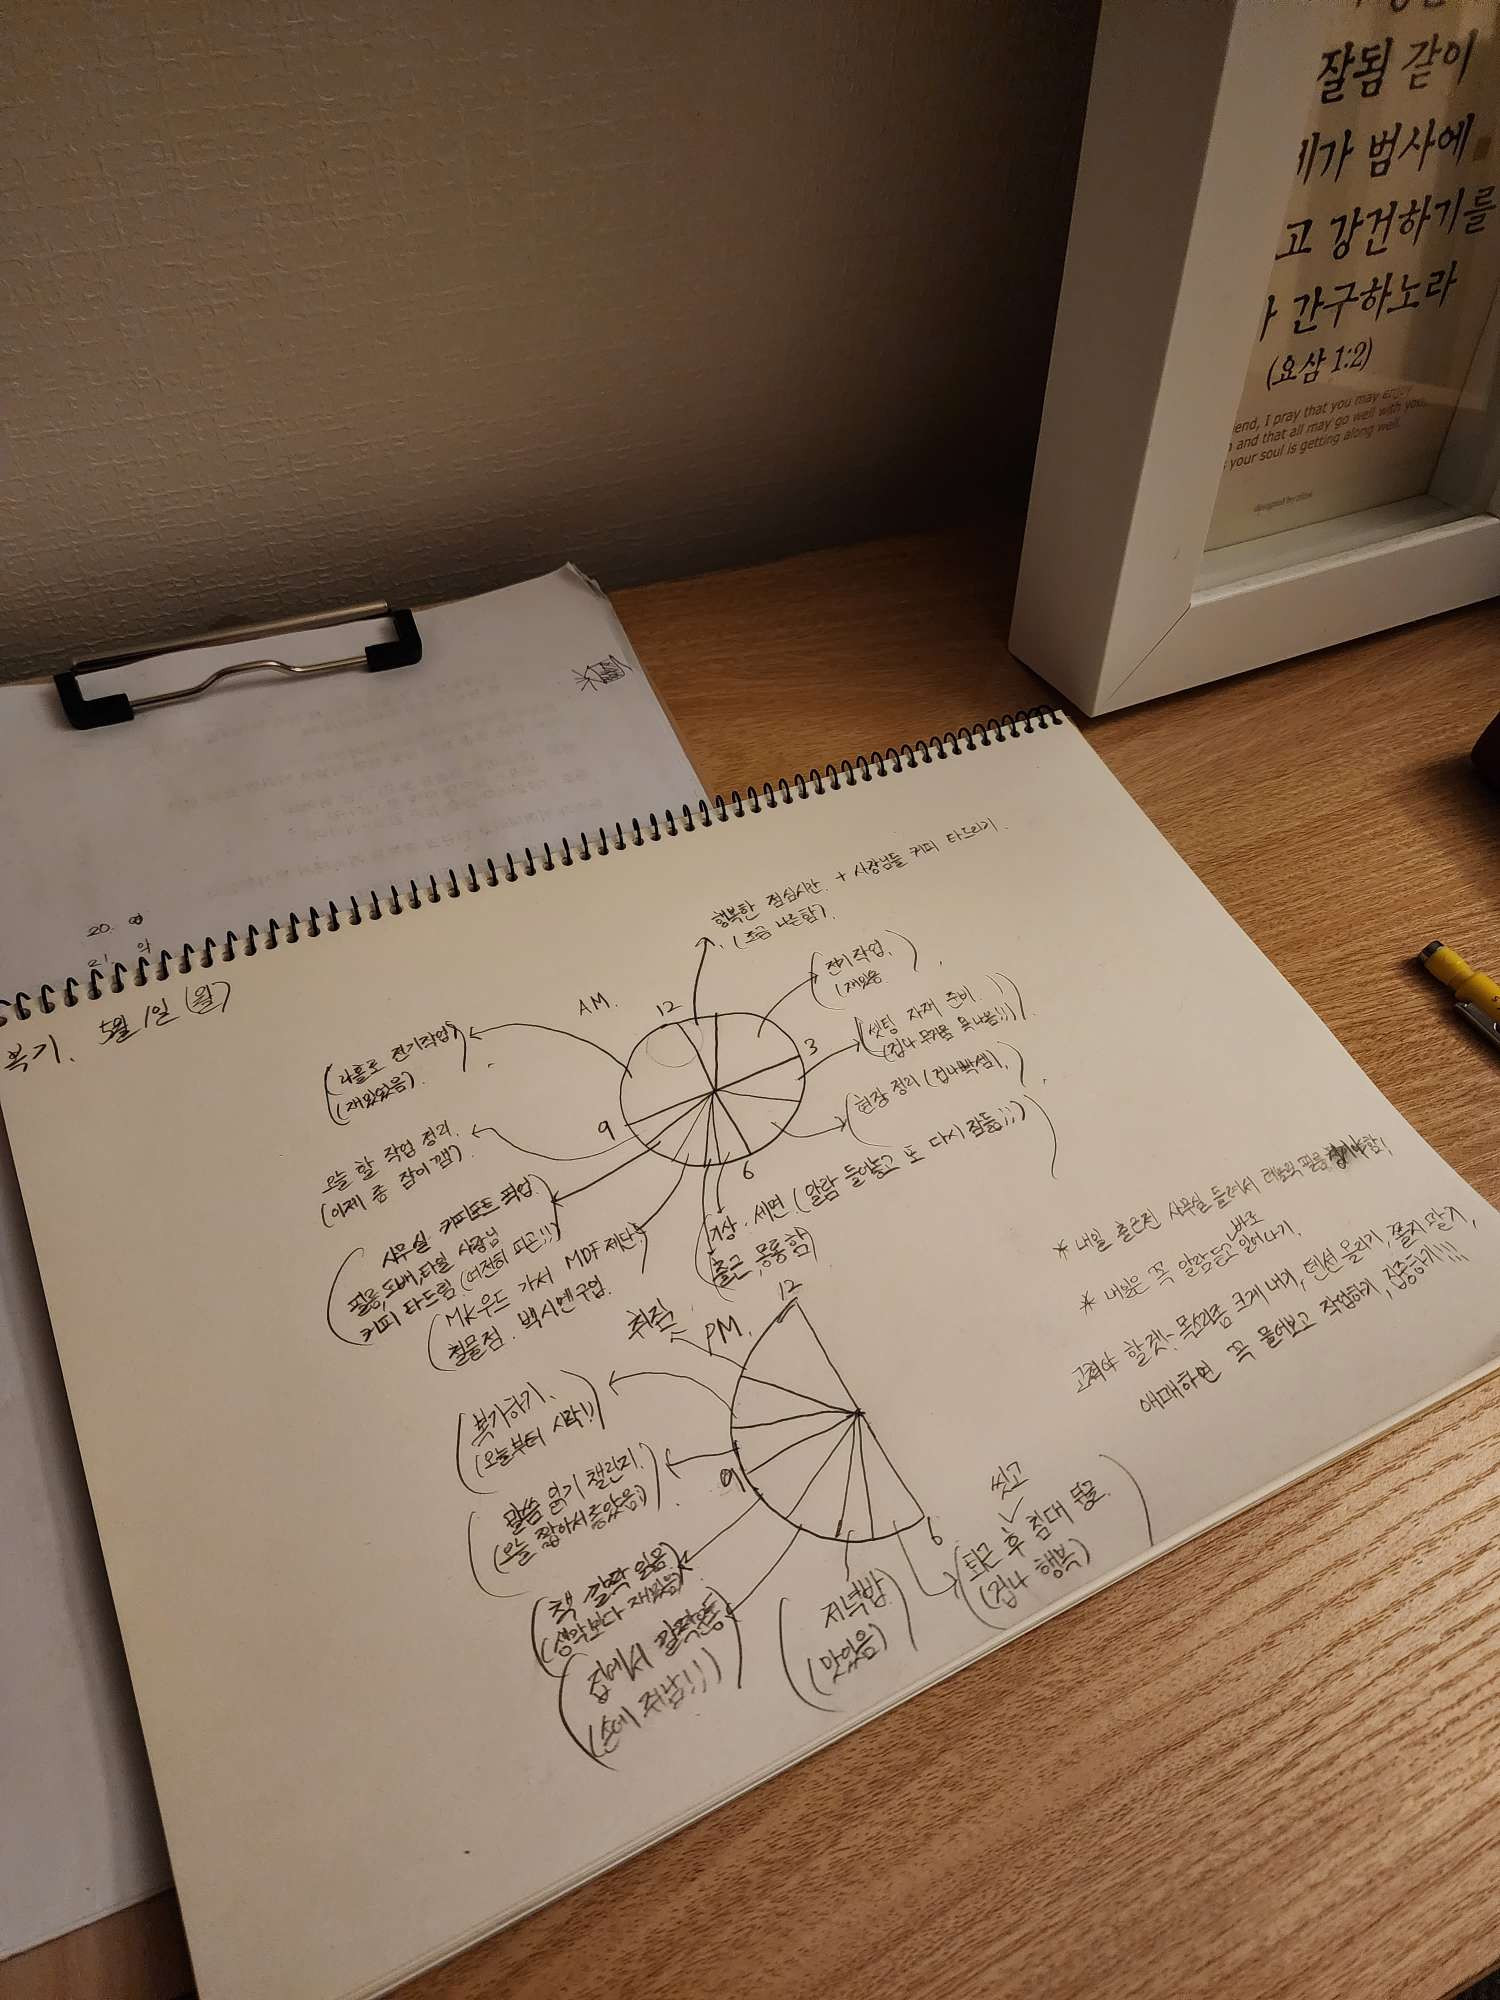 잘됨 같이
네가 범사에
고 강건하기를
간구하노라
(요삼 1:2)
end, I pray that you may enjoy
and that all may go well with you,
your soul is getting along well.
20.
21
복기. 5월 1일 (월)
행복한 점심시간. + 사장님들 커피 타드리기.
(조금 나른함).
AM.
12
전기작업.
(재밌음
셋팅 자재 준비.
(겁나 무거움 욕 나옴!!)
3
현장 정리 (겁나빡셈).
나홀로 전기작업
(재밌었음).
오늘 할 작업 정리.
(이제 좀 잠이 깸).
9
6
사무실 커피포트 픽업.
필름, 도배, 타일 사장님
커피 타드림. (여전히 피곤!!)
MK우드 가서 MDF 재단.
철물점. 백시멘 구입.
기상. 세면. (알람 들어놓고 또 다시 잠듦!!)
출근, 몽롱함
12
PM.
취침
복기하기.
(오늘부터 시작!)
말씀 읽기 챌린지.
(오늘 짧아서 좋았음)
9
책 깔짝 읽음
(생각보다 재밌음)
집에서 깔짝운동
(손에 쥐남!!)
저녁밥
(맛있음)
6
씻고
퇴근 후 침대 뒹굴.
(겁나 행복)
* 내일 출근전 사무실 들려서 필름 챙겨야함!
바로
* 내일은 꼭 알람듣고 일어나기.
고쳐야 할 것: 목소리좀 크게 내기, 텐션 올리기, 쫄지 말기,
애매하면 꼭 물어보고 작업하기, 집중하기!!!